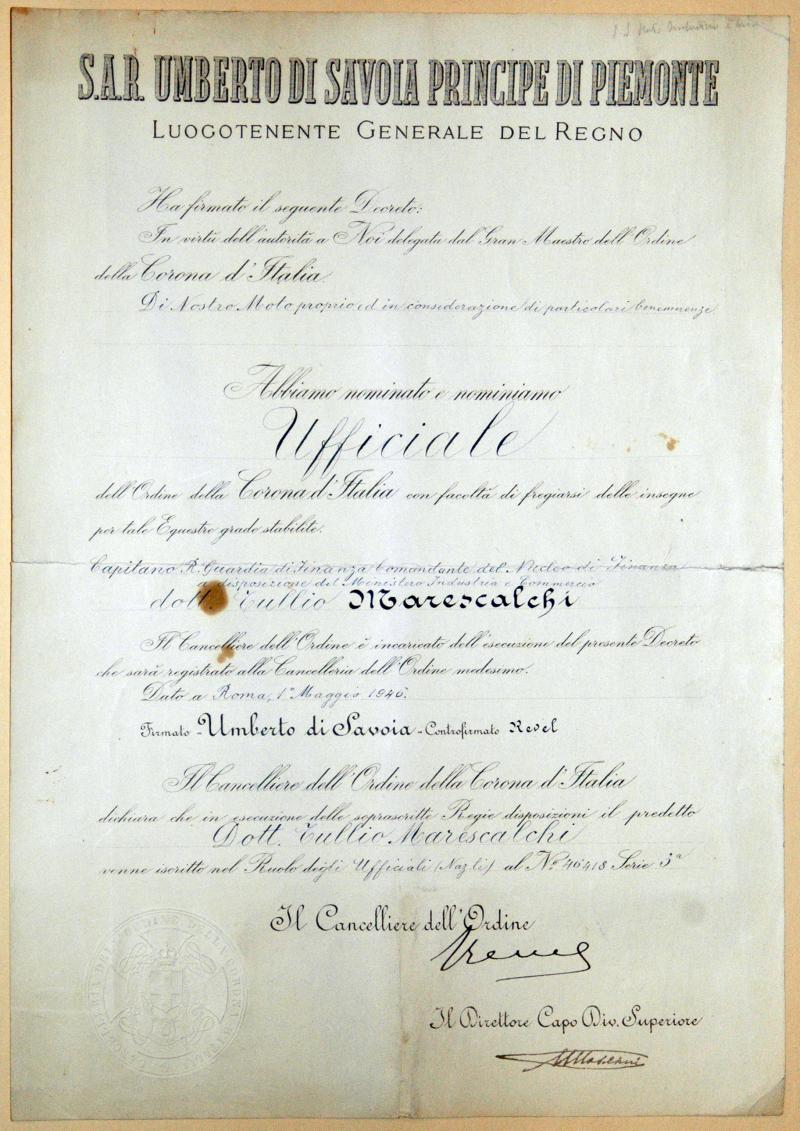 S.A.R. UMBERTO DI SAVOIA PRINCIPE DI PIEMONTE
LUOGOTENENTE GENERALE DEL REGNO
Ha firmato il seguente Decreto:
In virtù dell'autorità a Noi delegata dal Gran Maestro dell'Ordine
della Corona d'Italia
Di Nostro Moto proprio ed in considerazione di particolari benemerenze
Abbiamo nominato e nominiamo
Ufficiale
dell'Ordine della Corona d'Italia con facoltà di fregiarsi delle insegne
per tale Equestre grado stabilite.
Capitano R. Guardia di Finanza Comandante del Nucleo di Finanza
a disposizione del Ministero Industria e Commercio
dott. Tullio Marescalchi
Il Cancelliere dell'Ordine è incaricato dell'esecuzione del presente Decreto
che sarà registrato alla Cancelleria dell'Ordine medesimo.
Dato a Roma, 1° Maggio 1946.
Firmato - Umberto di Savoia - Controfirmato Revel
Il Cancelliere dell'Ordine della Corona d'Italia
dichiara che in esecuzione delle soprascritte Regie disposizioni il predetto
Dott. Tullio Marescalchi
venne iscritto nel Ruolo degli Ufficiali (Naz.li) al N.° 46418 Serie 3ª
Il Cancelliere dell'Ordine
Il Direttore Capo Div. Superiore